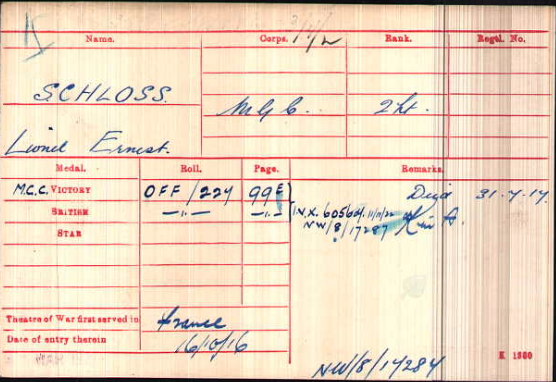 Name. Corps. Rank. Regtl. No.
SCHLOSS. M.G.C. 2/Lt.
Lionel Ernest.
Medal. Roll. Page. Remarks.
M.G.C. VICTORY OFF/224 99E Died 31.7.17.
BRITISH —"— —"— I.V.X. 605604 11/11/22
NW/8/17287
STAR
Theatre of War first served in France
Date of entry therein 16/10/16
NW/8/17284
K 1380